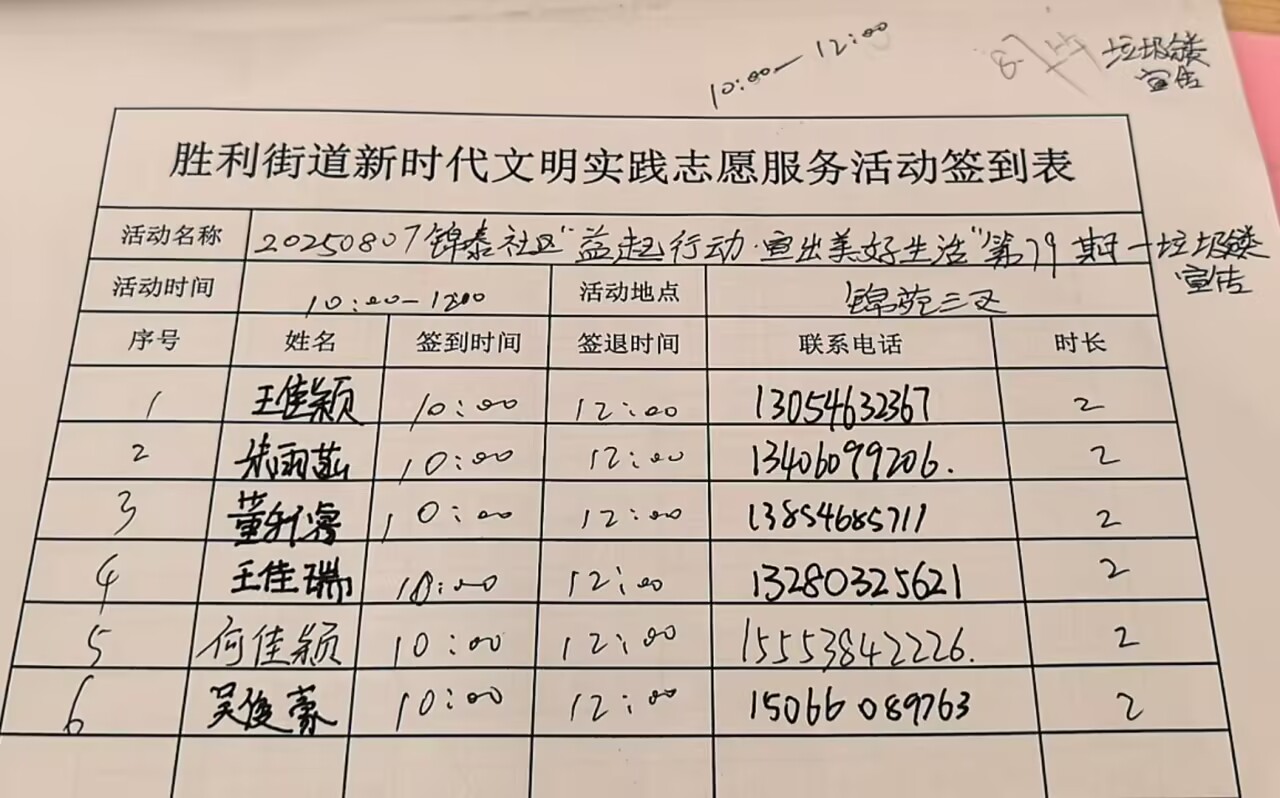 10:00—12:00
垃圾
宣传
胜利街道新时代文明实践志愿服务活动签到表
活动名称 20250807锦泰社区"益起行动·宣出美好生活"第79期—垃圾
宣传
活动时间 10:00-12:00 活动地点 锦苑三区
序号 姓名 签到时间 签退时间 联系电话 时长
1 王佳颖 10:00 12:00 13054632367 2
2 10:00 12:00 13406099206. 2
3 董 10:00 12:00 13854685711 2
4 王佳瑞 10:00 12:00 13280325621 2
5 何佳颖 10:00 12:00 15553842226. 2
6 吴俊豪 10:00 12:00 15066089763 2